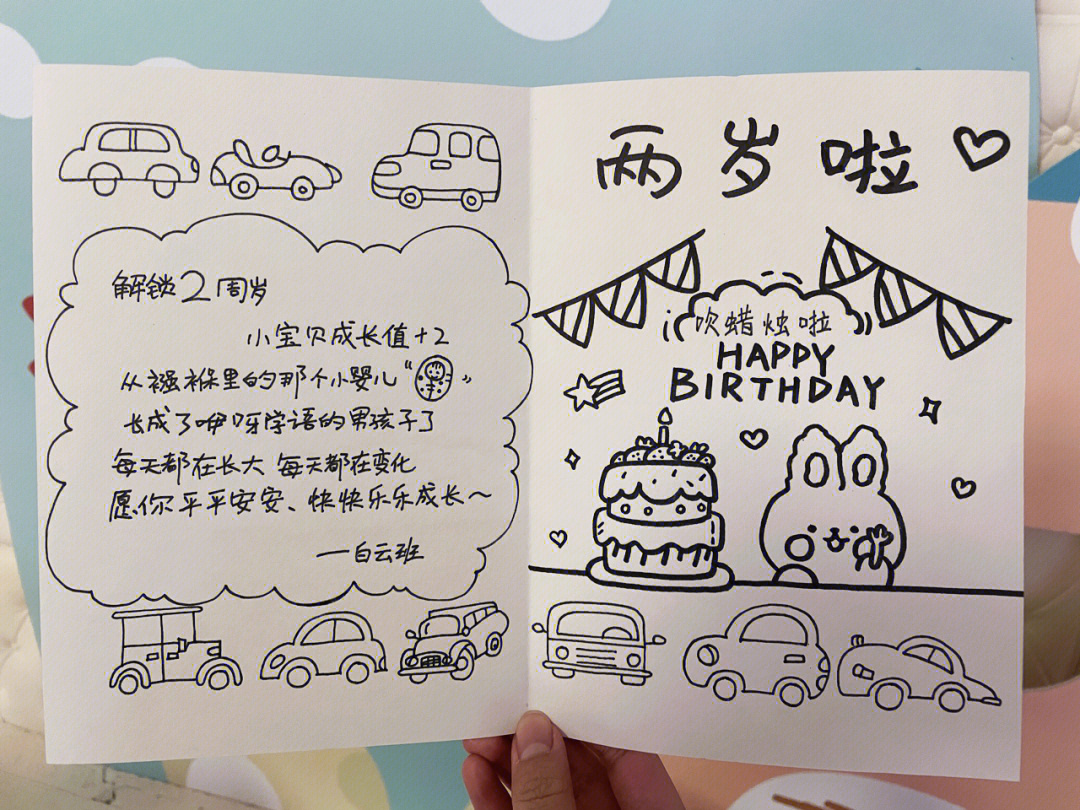 解锁2周岁
小宝贝成长值+2
从襁褓里的那个小婴儿“ ”
长成了咿呀学语的男孩子了
每天都在长大 每天都在变化
愿你平平安安、快快乐乐成长~
—白云班
两岁啦
吹蜡烛啦
HAPPY
BIRTHDAY